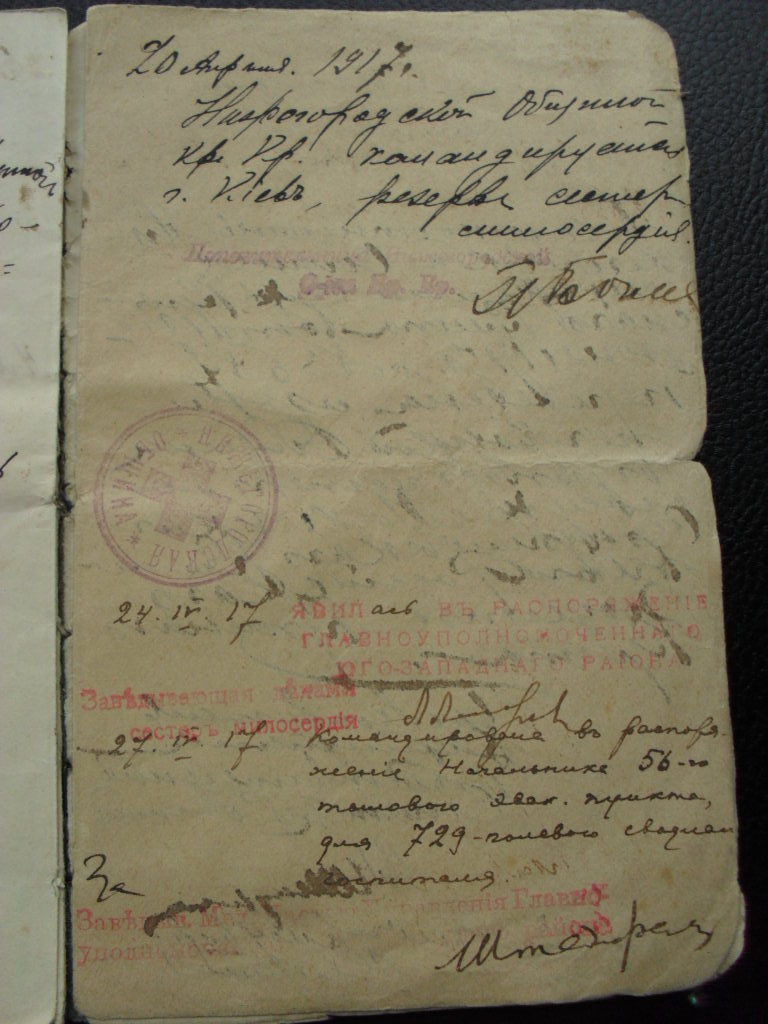 20 Апрѣля. 1917 г.
Нижегородской Общиной
Кр. Кр. командируется
г. Кіевъ, резервъ сестер
милосердія.
Нижегородской
О-ны Кр. Кр.
НИЖЕГОРОДСКАЯ * ОБЩИНА *
24. IV. 17 ЯВИЛась ВЪ РАСПОРЯЖЕНІЕ
ГЛАВНОУПОЛНОМОЧЕННАГО
ЮГО-ЗАПАДНАГО РАІОНА
Завѣдывающая дѣлами
сестеръ милосердія
27. IV. 17 Командирована въ распоря-
женіе Начальника 56-го
тылового эвак. пункта,
для 729-полевого сводн
госпиталя.
За
Завѣдыв. Управленія Главно
уполномоч. района